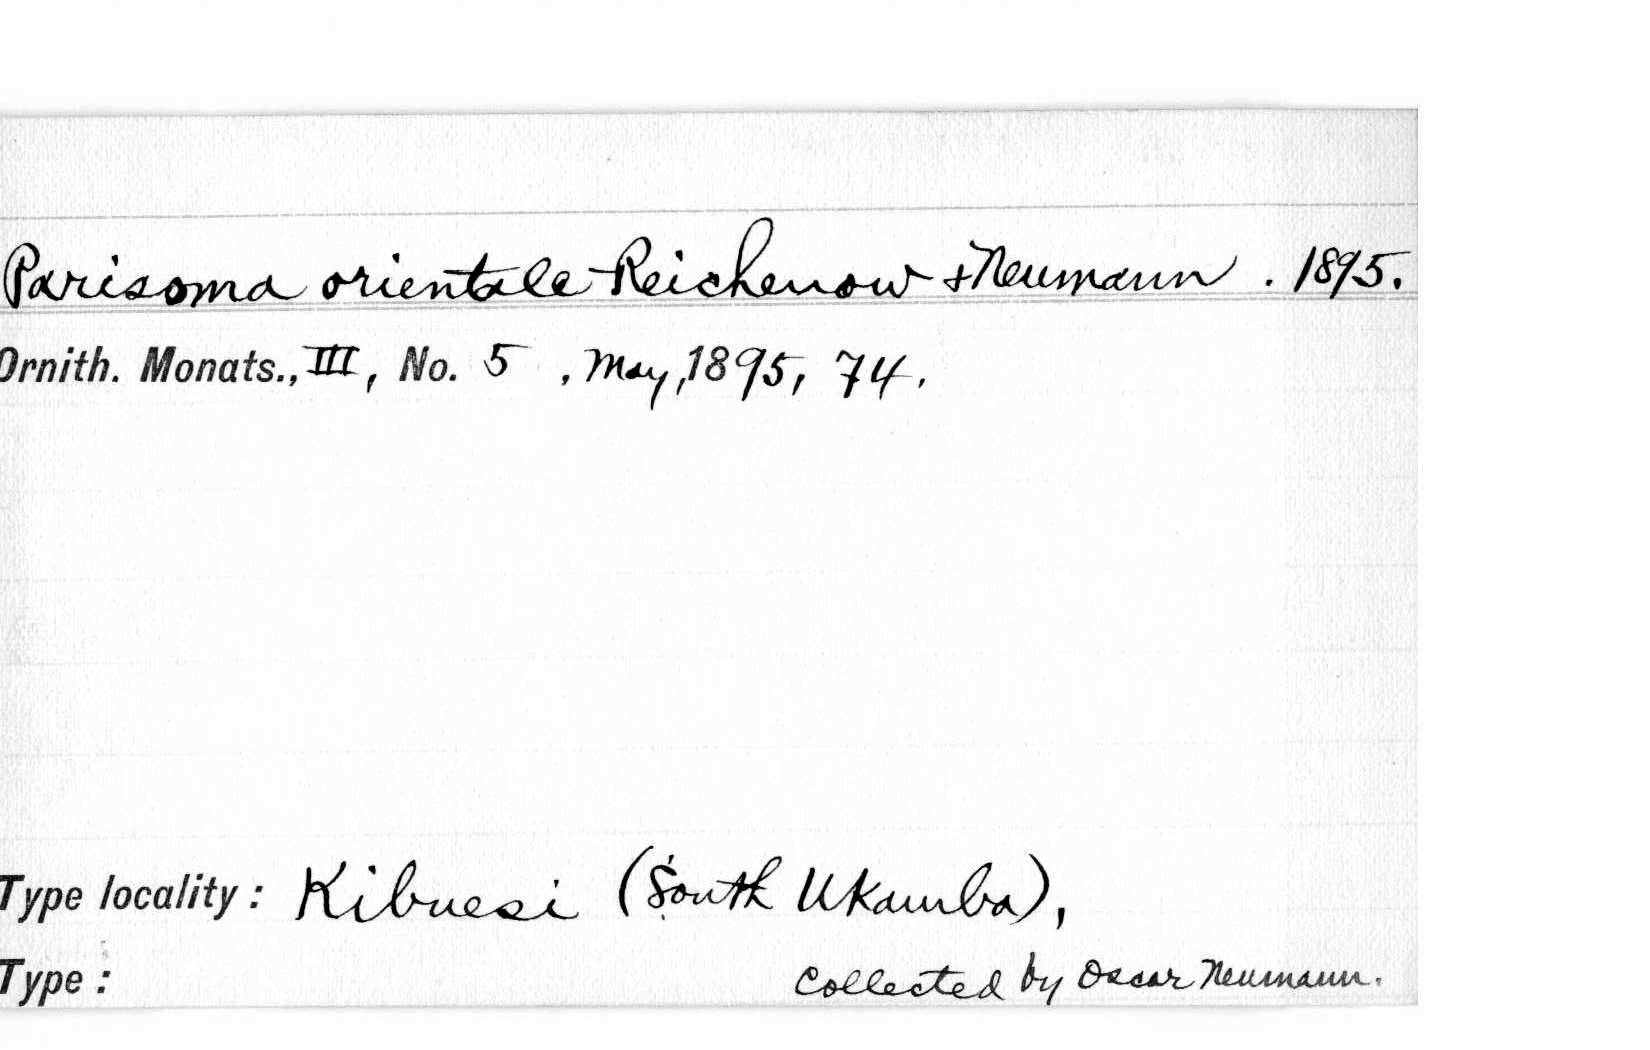 Parisoma orientale Reichenow & Neumann . 1895.
Ornith. Monats., III, No. 5 , May, 1895, 74.
Type locality: Kibuesi (South Ukamba),
Type: Collected by Oscar Neumann.